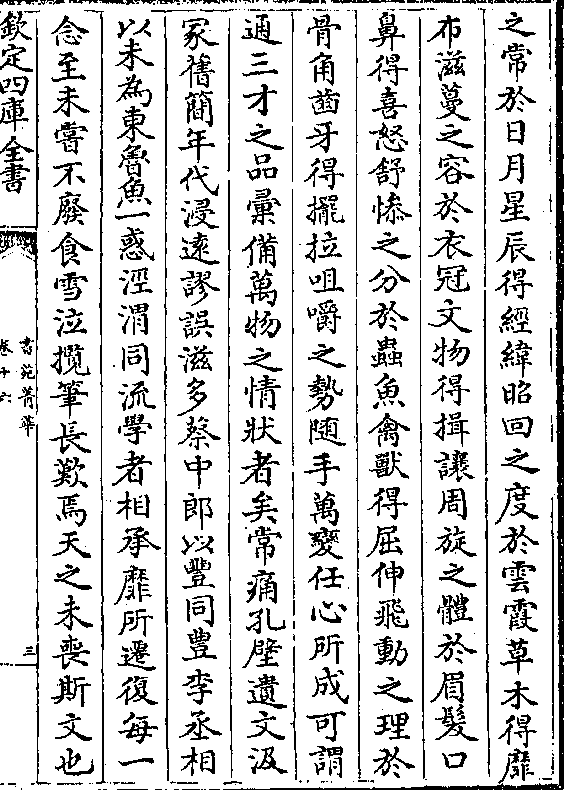 之常於日月星辰得經緯昭回之度於雲霞草木得靡
布滋蔓之容於衣冠文物得揖讓周旋之體於眉髮口
鼻得喜怒舒慘之分於蟲魚禽獸得屈伸飛動之理於
骨角齒牙得擺拉咀嚼之勢隨手萬變任心所成可謂
通三才之品彙備萬物之情狀者矣常痛孔壁遺文汲
冢舊簡年代浸遠謬誤滋多蔡中郎以豐同豊李丞相
以未為東魯魚一惑涇渭同流學者相承靡所遷復每一
念至未嘗不廢食雪泣攬筆長歎焉天之未喪斯文也
欽定四庫全書
書苑菁華
卷十六
三